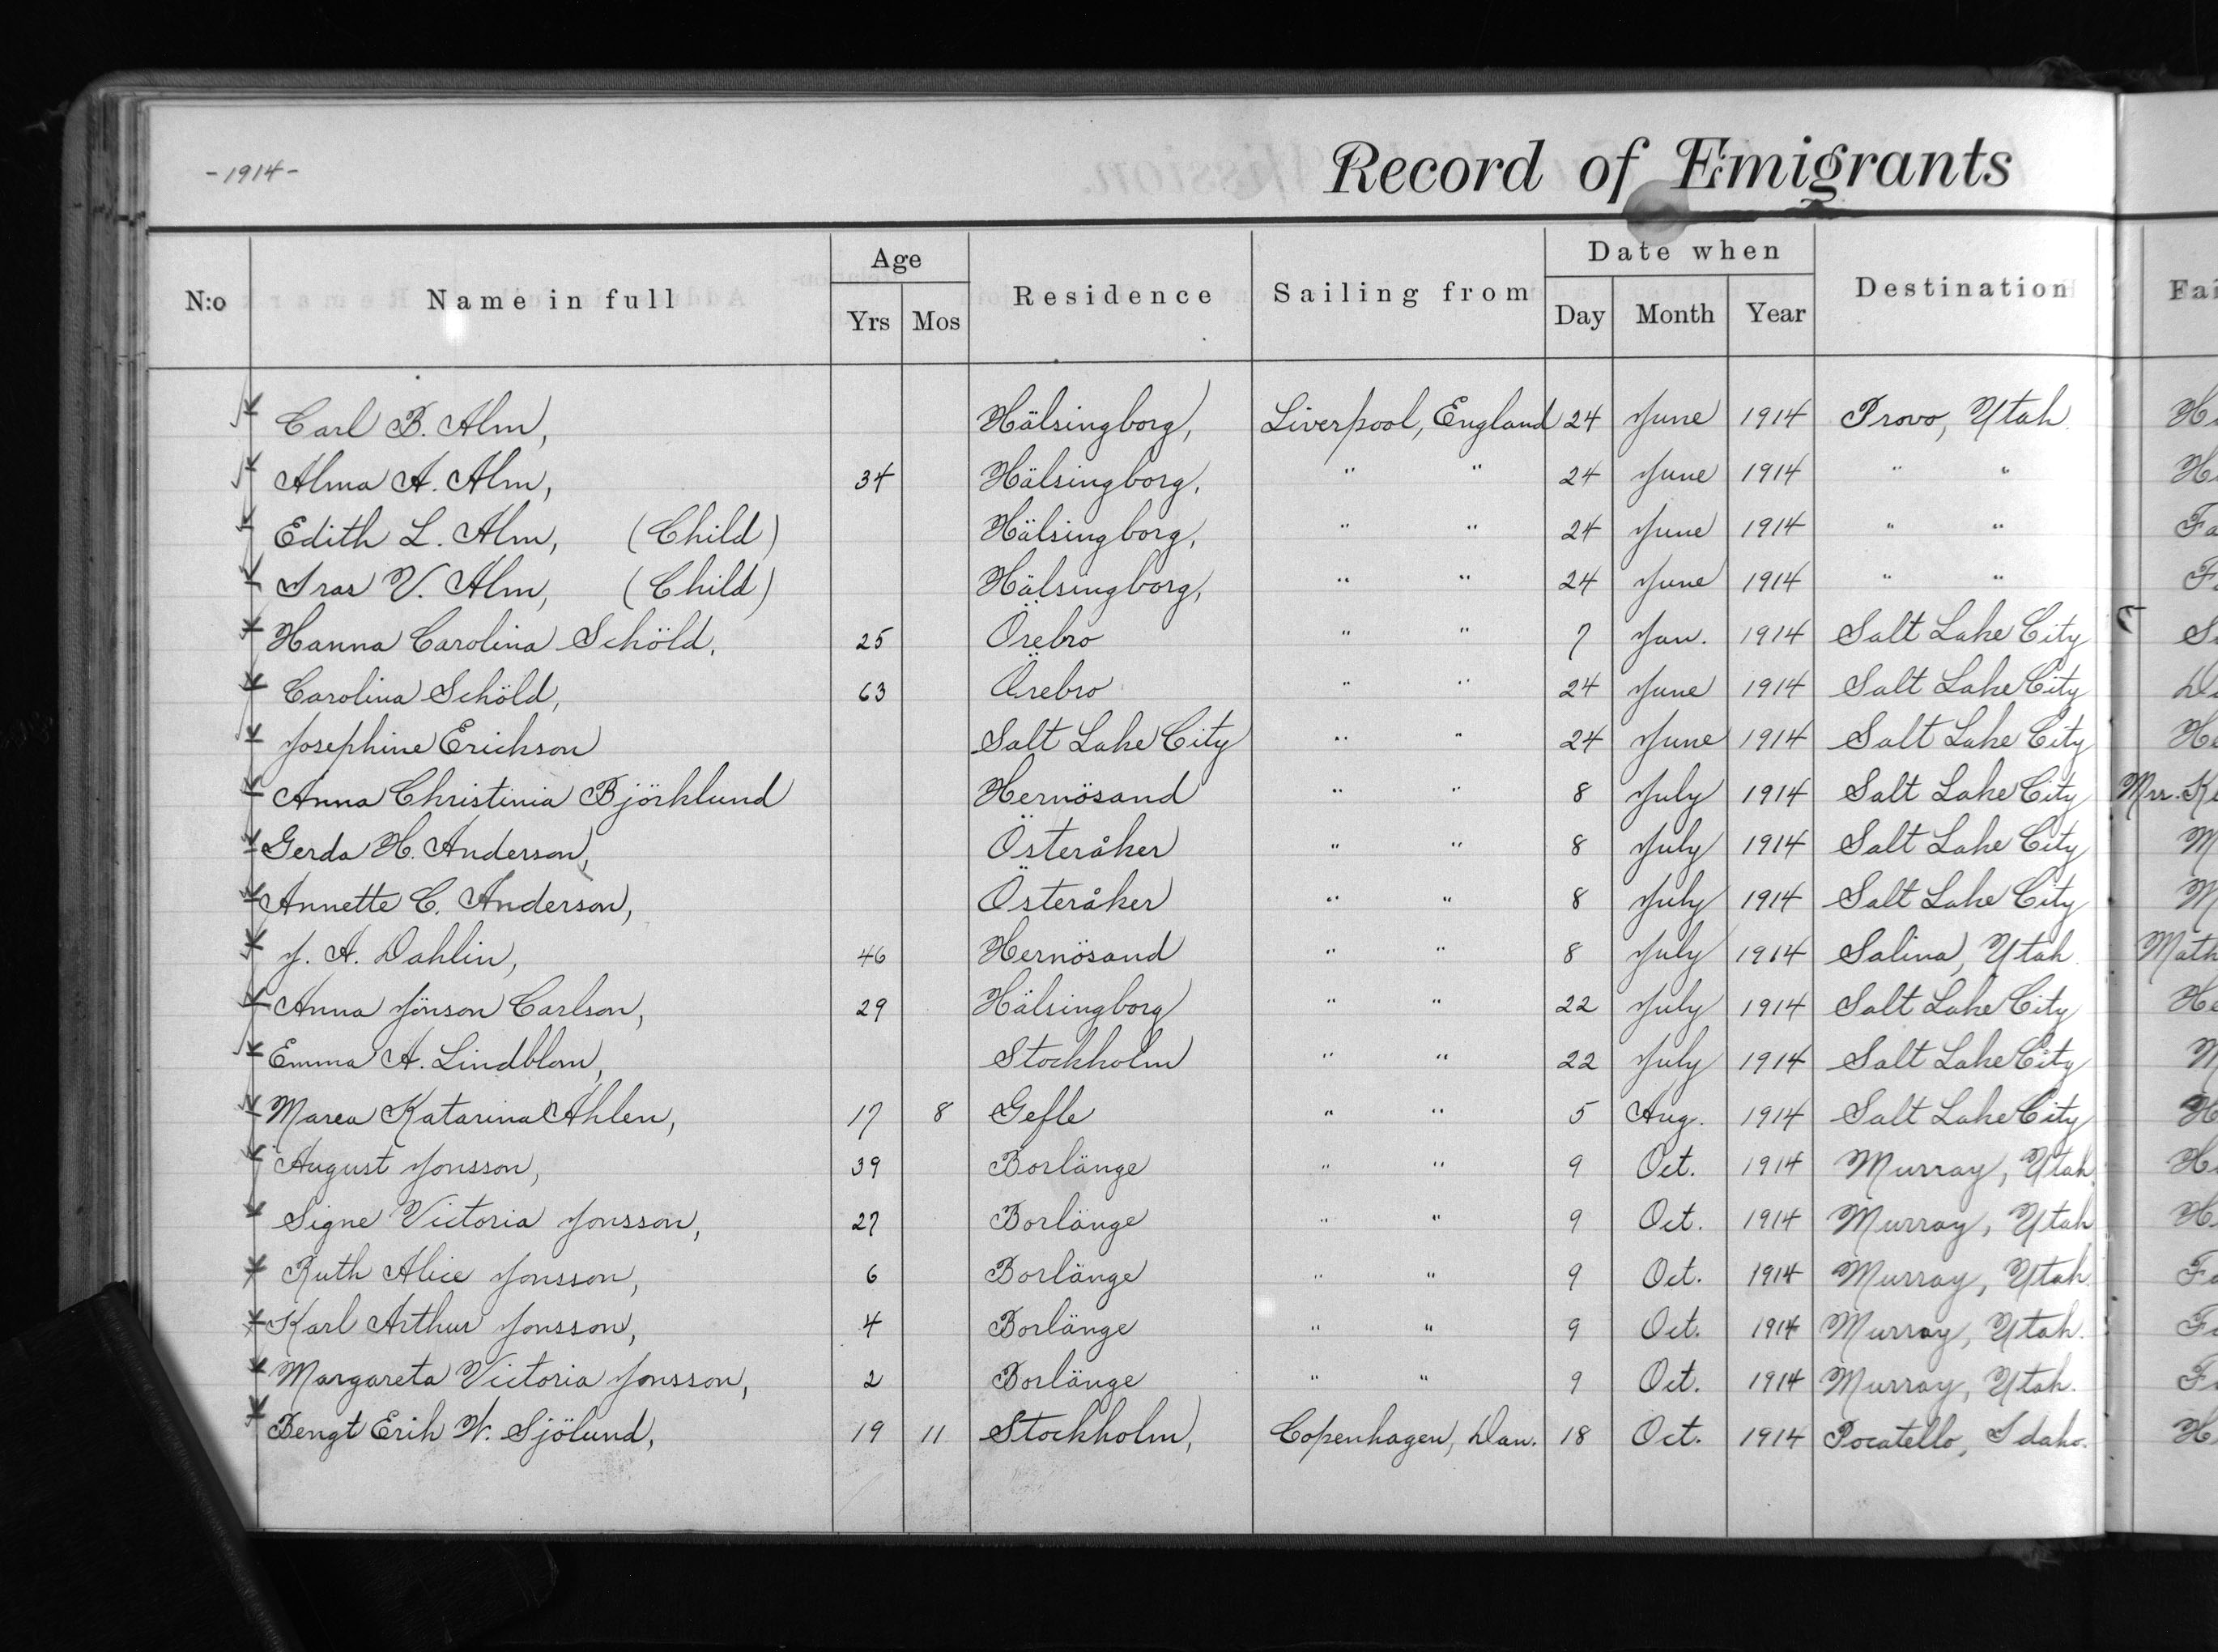 -1914-
Record of Emigrants
N:o Name in full Age Yrs Mos Residence Sailing from Date when Day Month Year Destination
Carl B. Alm, Hälsingborg, Liverpool, England 24 June 1914 Provo, Utah
Alma A. Alm, 34 Hälsingborg, " " 24 June 1914 " "
Edith L. Alm, (Child) Hälsingborg, " " 24 June 1914 " "
V. Alm, (Child) Hälsingborg, " " 24 June 1914 " "
Hanna Carolina Schöld, 25 Örebro " " 7 Jan. 1914 Salt Lake City
Carolina Schöld, 63 Örebro " " 24 June 1914 Salt Lake City
Josephine Erickson Salt Lake City " " 24 June 1914 Salt Lake City
Anna Christinia Björklund Hernösand " " 8 July 1914 Salt Lake City Mrs.
Gerda H. Anderson, Österåker " " 8 July 1914 Salt Lake City
Annette C. Anderson, Österåker " " 8 July 1914 Salt Lake City
J. A. Dahlin, 46 Hernösand " " 8 July 1914 Salina, Utah Math
Anna Jönson Carlson, 29 Hälsingborg " " 22 July 1914 Salt Lake City
Emma A. Lindblom, Stockholm " " 22 July 1914 Salt Lake City
Marea Katarina Ahlen, 17 8 Gefle " " 5 Aug. 1914 Salt Lake City
August Jonsson, 39 Borlänge " " 9 Oct. 1914 Murray, Utah
Signe Victoria Jonsson, 27 Borlänge " " 9 Oct. 1914 Murray, Utah
Ruth Alice Jonsson, 6 Borlänge " " 9 Oct. 1914 Murray, Utah
Karl Arthur Jonsson, 4 Borlänge " " 9 Oct. 1914 Murray, Utah.
Margareta Victoria Jonsson, 2 Borlänge " " 9 Oct. 1914 Murray, Utah.
Bengt Erik W. Sjölund, 19 11 Stockholm, Copenhagen, Dan. 18 Oct. 1914 Pocatello, Idaho.